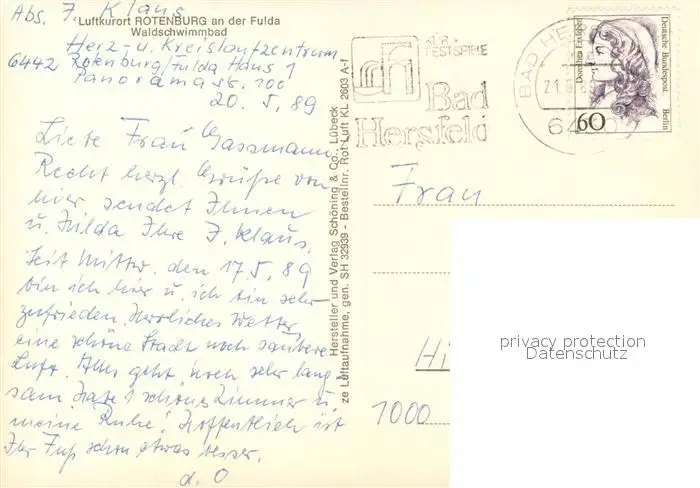 Abs. J. Klaus
Luftkurort ROTENBURG an der Fulda
Waldschwimmbad
Herz- u. Kreislaufzentrum
6442 Rotenburg/Fulda Haus 1
Panoramastr. 100
20. 5. 89
Liebe Frau Gassmann,
Recht herzl. Grüße von
hier sendet Ihnen
u. Hilda Ihre J. Klaus.
Seit Mittw. den 17. 5. 89
bin ich hier u. ich bin sehr
zufrieden. Herrliches Wetter,
eine schöne Stadt noch saubere
Luft. Alles geht noch sehr lang
sam. Habe 1 schönes Zimmer u.
meine Ruhe! Hoffentlich ist
Ihr Fuß schon etwas besser.
d. O
Hersteller und Verlag Schöning & Co., Lübeck
ze Luftaufnahme, gen. SH 32939 - Bestellnr. Rot Luft KL 2603 A-f
FESTSPIELE
Bad
Hersfeld
BAD HE
21.
6
Dorothea Erxleben
Deutsche Bundespost
Berlin
60
Frau
Hi
1000
privacy protection
Datenschutz